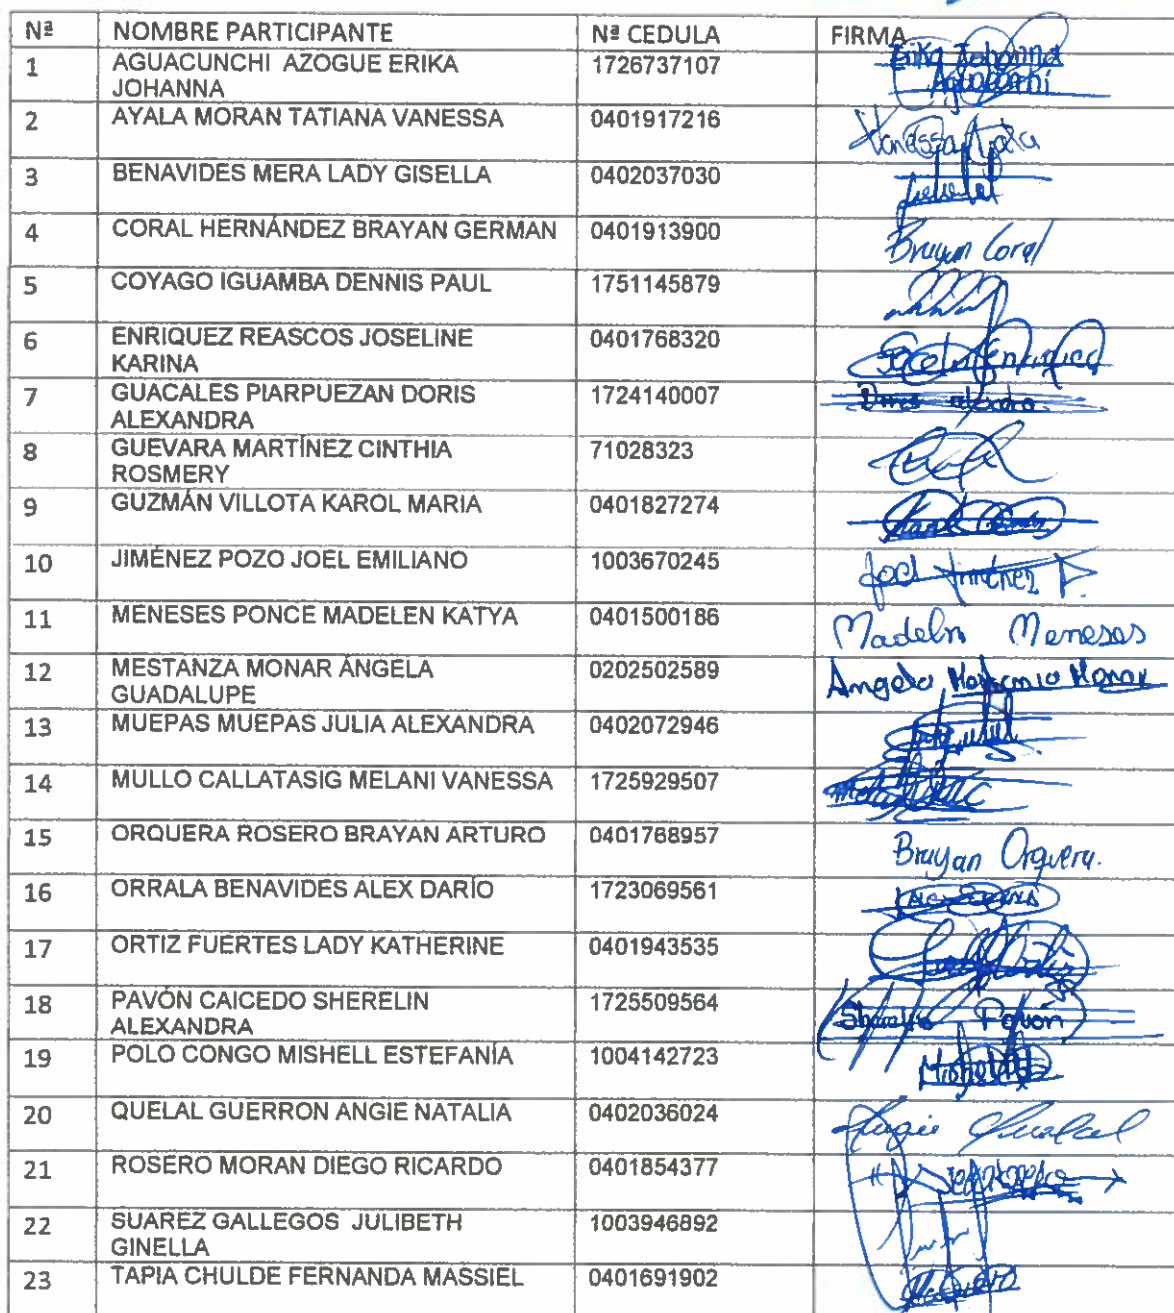 Nª NOMBRE PARTICIPANTE Nª CEDULA FIRMA
1 AGUACUNCHI AZOGUE ERIKA 1726737107 Erika Johanna
JOHANNA
2 AYALA MORAN TATIANA VANESSA 0401917216 Vanessa Ayala
3 BENAVIDES MERA LADY GISELLA 0402037030
4 CORAL HERNÁNDEZ BRAYAN GERMAN 0401913900 Brayan Coral
5 COYAGO IGUAMBA DENNIS PAUL 1751145879
6 ENRIQUEZ REASCOS JOSELINE 0401768320
KARINA
7 GUACALES PIARPUEZAN DORIS 1724140007
ALEXANDRA
8 GUEVARA MARTÍNEZ CINTHIA 71028323
ROSMERY
9 GUZMÁN VILLOTA KAROL MARIA 0401827274
10 JIMÉNEZ POZO JOEL EMILIANO 1003670245 Joel Jiménez P.
11 MENESES PONCE MADELEN KATYA 0401500186 Madeln Meneses
12 MESTANZA MONAR ÁNGELA 0202502589 Angela Monar
GUADALUPE
13 MUEPAS MUEPAS JULIA ALEXANDRA 0402072946
14 MULLO CALLATASIG MELANI VANESSA 1725929507
15 ORQUERA ROSERO BRAYAN ARTURO 0401768957 Brayan Orquera.
16 ORRALA BENAVIDES ALEX DARÍO 1723069561
17 ORTIZ FUERTES LADY KATHERINE 0401943535
18 PAVÓN CAICEDO SHERELIN 1725509564 Pavón
ALEXANDRA
19 POLO CONGO MISHELL ESTEFANÍA 1004142723
20 QUELAL GUERRON ANGIE NATALIA 0402036024 Angie Quelal
21 ROSERO MORAN DIEGO RICARDO 0401854377
22 SUAREZ GALLEGOS JULIBETH 1003946892
GINELLA
23 TAPIA CHULDE FERNANDA MASSIEL 0401691902